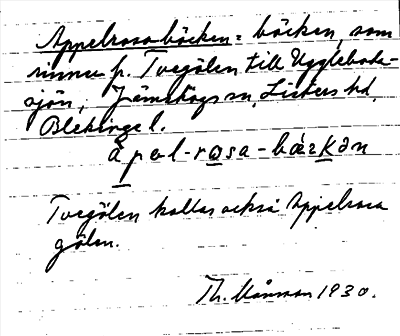 Appelrosabäcken = bäcken, som
rinner fr. Tvegölen till Ugglebods-
sjön, Jämshögs sn, Listers hd,
Blekinge l.
àpəl-rosa-bæ̀rkən
Tvegölen kallas också Appelrosa
gölen.
Th. Månsson 1930.